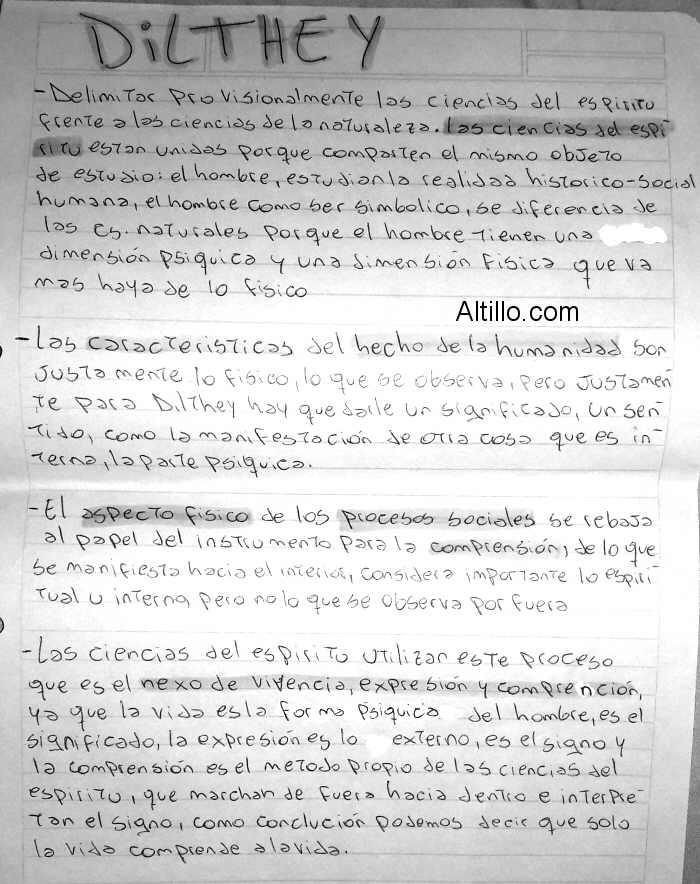 DILTHEY
- Delimitar provisionalmente las ciencias del espiritu
frente a las ciencias de la naturaleza. Las ciencias del espi
ritu estan unidas porque comparten el mismo objeto
de estudio: el hombre, estudian la realidad historico-social
humana, el hombre como ser simbolico, se diferencia de
las cs. naturales porque el hombre tienen una
dimensión psiquica y una dimensión fisica que va
mas haya de lo fisico
Altillo.com
- Las caracteristicas del hecho de la humanidad son
justa mente lo fisico, lo que se observa, pero justamen
te para Dilthey hay que darle un significado, un sen-
tido, como la manifestación de otra cosa que es in-
terna, la parte psiquica.
- El aspecto fisico de los procesos sociales se rebaja
al papel del instrumento para la comprensión, de lo que
se manifiesta hacia el interior, considera importante lo espiri-
tual u interno, pero no lo que se observa por fuera
- Las ciencias del espiritu utilizan este proceso
que es el nexo de vivencia, expresión y comprención,
ya que la vida es la forma psiquica del hombre, es el
significado, la expresión es lo externo, es el signo y
la comprensión es el metodo propio de las ciencias del
espiritu, que marchan de fuera hacia dentro e interpre-
tan el signo, como conclución podemos decir que solo
la vida comprende a la vida.